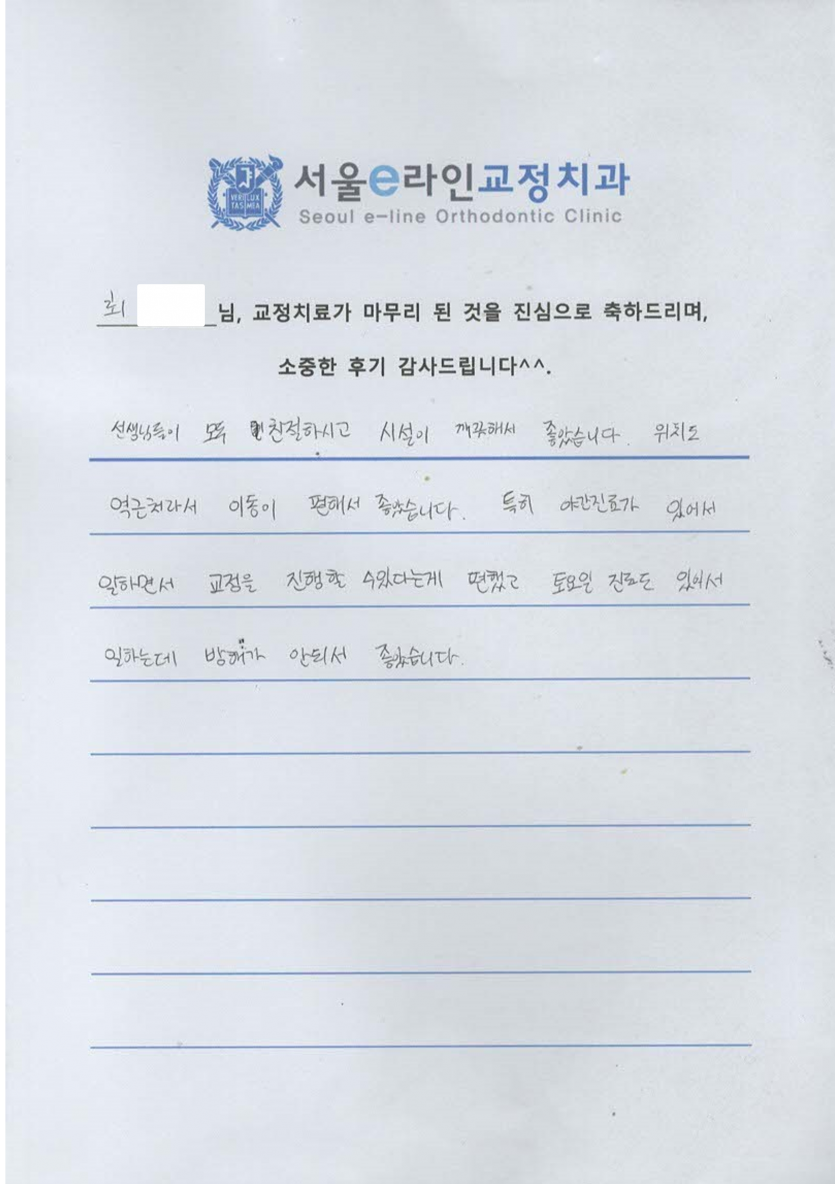 VERI LUX
TAS MEA
서울e라인교정치과
Seoul e-line Orthodontic Clinic
최 님, 교정치료가 마무리 된 것을 진심으로 축하드리며,
소중한 후기 감사드립니다^^.
선생님들이 모두 친절하시고 시설이 깨끗해서 좋았습니다. 위치도
역근처라서 이동이 편해서 좋았습니다. 특히 야간진료가 있어서
일하면서 교정을 진행할 수있다는게 편했고 토요일 진료도 있어서
일하는데 방해가 안되서 좋았습니다.